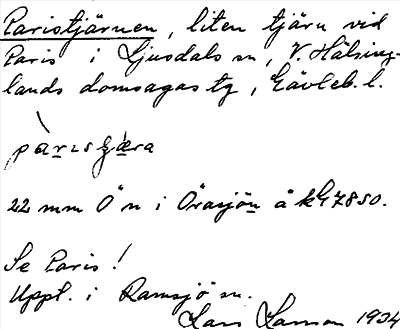 Paristjärnen, liten tjärn vid
Paris i Ljusdals sn, V. Hälsing-
lands domsagas tg, Gävleb. l.
22 mm Ö n i Örasjön å kG7850.
Se Paris!
Uppt. i Ramsjö sn.
Lars Larson 1934